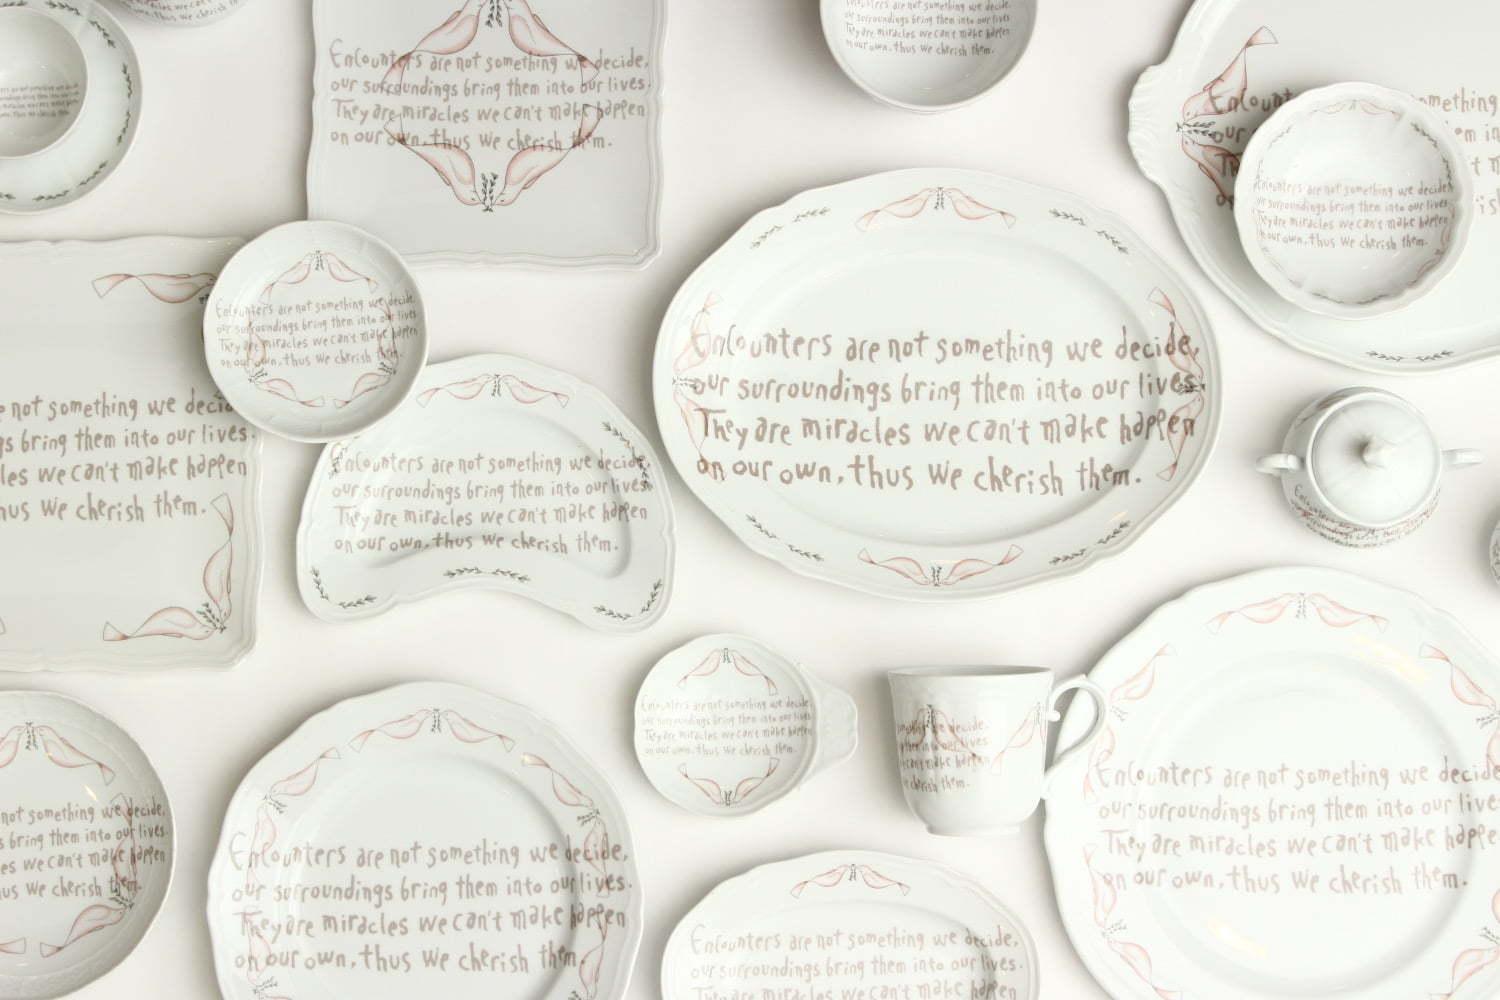 Encounters are not something we decide,
our surroundings bring them into our lives.
They are miracles we can't make happen
on our own, thus we cherish them.
our surroundings bring them into our lives.
They are miracles we can't make happen
on our own, thus we cherish them.
Encounters are not something we decide,
our surroundings bring them into our lives.
They are miracles we can't make happen
on our own, thus we cherish them.
Encounters are not something we decide,
our surroundings bring them into our lives.
They are miracles we can't make happen
on our own, thus we cherish them.
Encounters are not something we decide,
our surroundings bring them into our lives.
They are miracles we can't make happen
on our own, thus we cherish them.
not something we decide,
bring them into our lives.
we can't make happen
thus we cherish them.
Encounters are not something we decide,
our surroundings bring them into our lives.
They are miracles we can't make happen
on our own, thus we cherish them.
Encounters are not something we decide,
our surroundings bring them into our lives.
They are miracles we can't make happen
on our own, thus we cherish them.
something we decide,
them into our lives.
can't make happen
cherish them.
Encounters are not something we decide,
our surroundings bring them into our lives.
They are miracles we can't make happen
on our own, thus we cherish them.
are not something we decide,
bring them into our lives.
we can't make happen
thus we cherish them.
Encounters are not something we decide,
our surroundings bring them into our lives.
They are miracles we can't make happen
on our own, thus we cherish them.
Encounters are not something we decide,
our surroundings bring them into our lives.
They are miracles we can't make happen